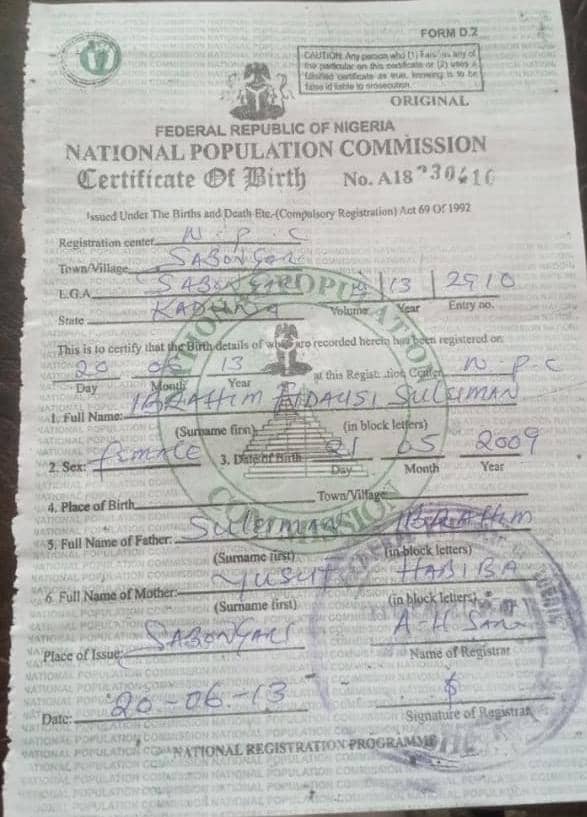 FORM D.2
CAUTION: Any person who (1) Falsifies any of
the particular on this certificate or (2) uses a
falsified certificate as true, knowing is to be
false id liable to prosecution.
ORIGINAL
FEDERAL REPUBLIC OF NIGERIA
NATIONAL POPULATION COMMISSION
Certificate Of Birth No. A18
Issued Under The Births and Death Etc.-(Compulsory Registration) Act 69 Of 1992
Registration center N.P.C
Town/Village SABON GARI
L.G.A SABON GARI 13 2910
State KADUNA Volume Year Entry no.
This is to certify that the Birth details of which are recorded herein has been registered on
20 06 13 at this Registration Center N-P-C
Day Month Year
1. Full Name: IBRAHIM FIDAUSI SULEIMAN
(Surname firn) (in block letters)
2. Sex: female 3. Date of Birth 21 05 2009
Day Month Year
4. Place of Birth Town/Village
5. Full Name of Father: Suleiman IBRAHIM
(Surname first) (in block letters)
6. Full Name of Mother: Yusuf HABIBA
(Surname first) (in block letters)
Place of Issue: SABON GARI A-H
Name of Registrar
Date: 20-06-13
Signature of Registrar
NATIONAL REGISTRATION PROGRAMME